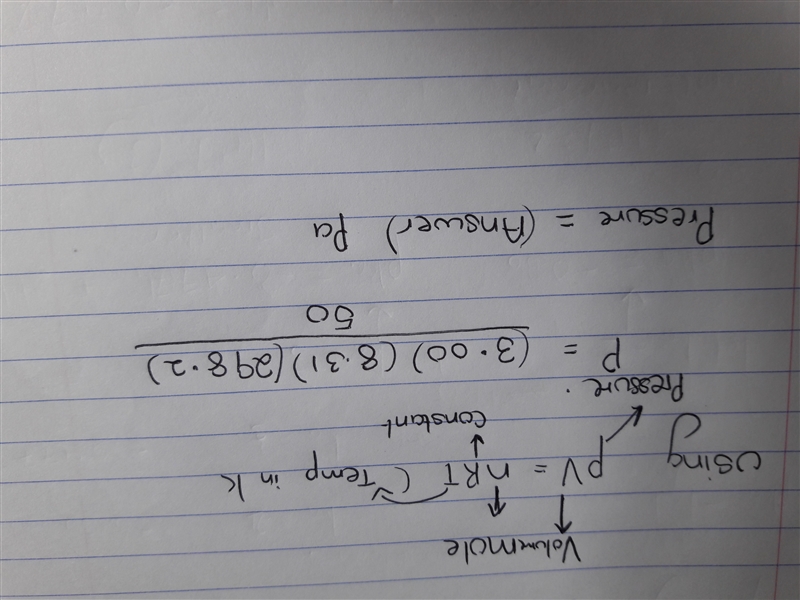 Volume mole
Using pV = nRT (Temp in K
Pressure constant
P = (3.00) (8.31) (298.2)
50
Pressure = (Answer) Pa